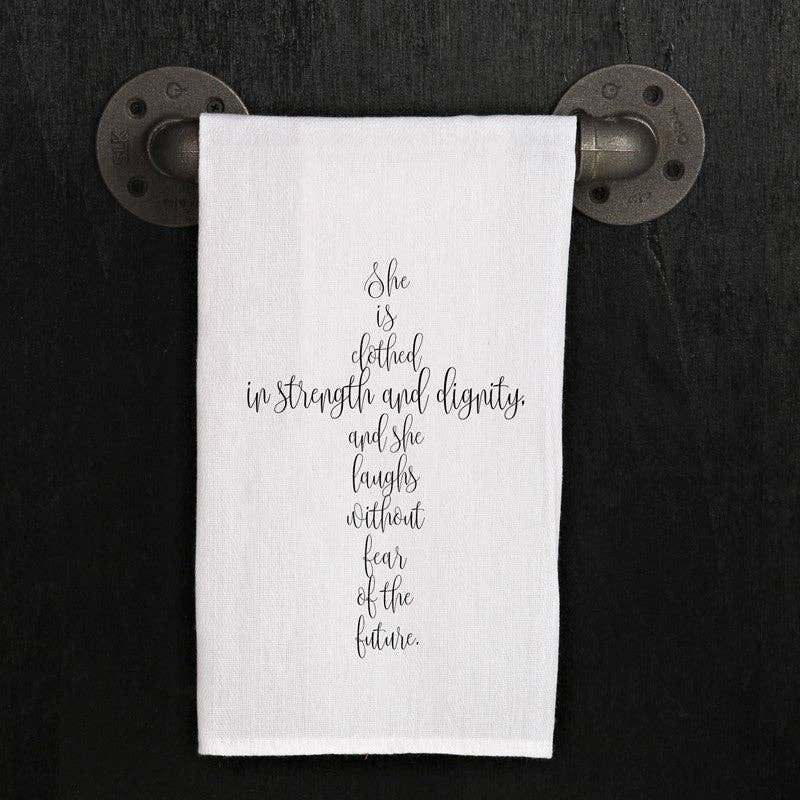 She
is
clothed
in strength and dignity,
and she
laughs
without
fear
of the
future.